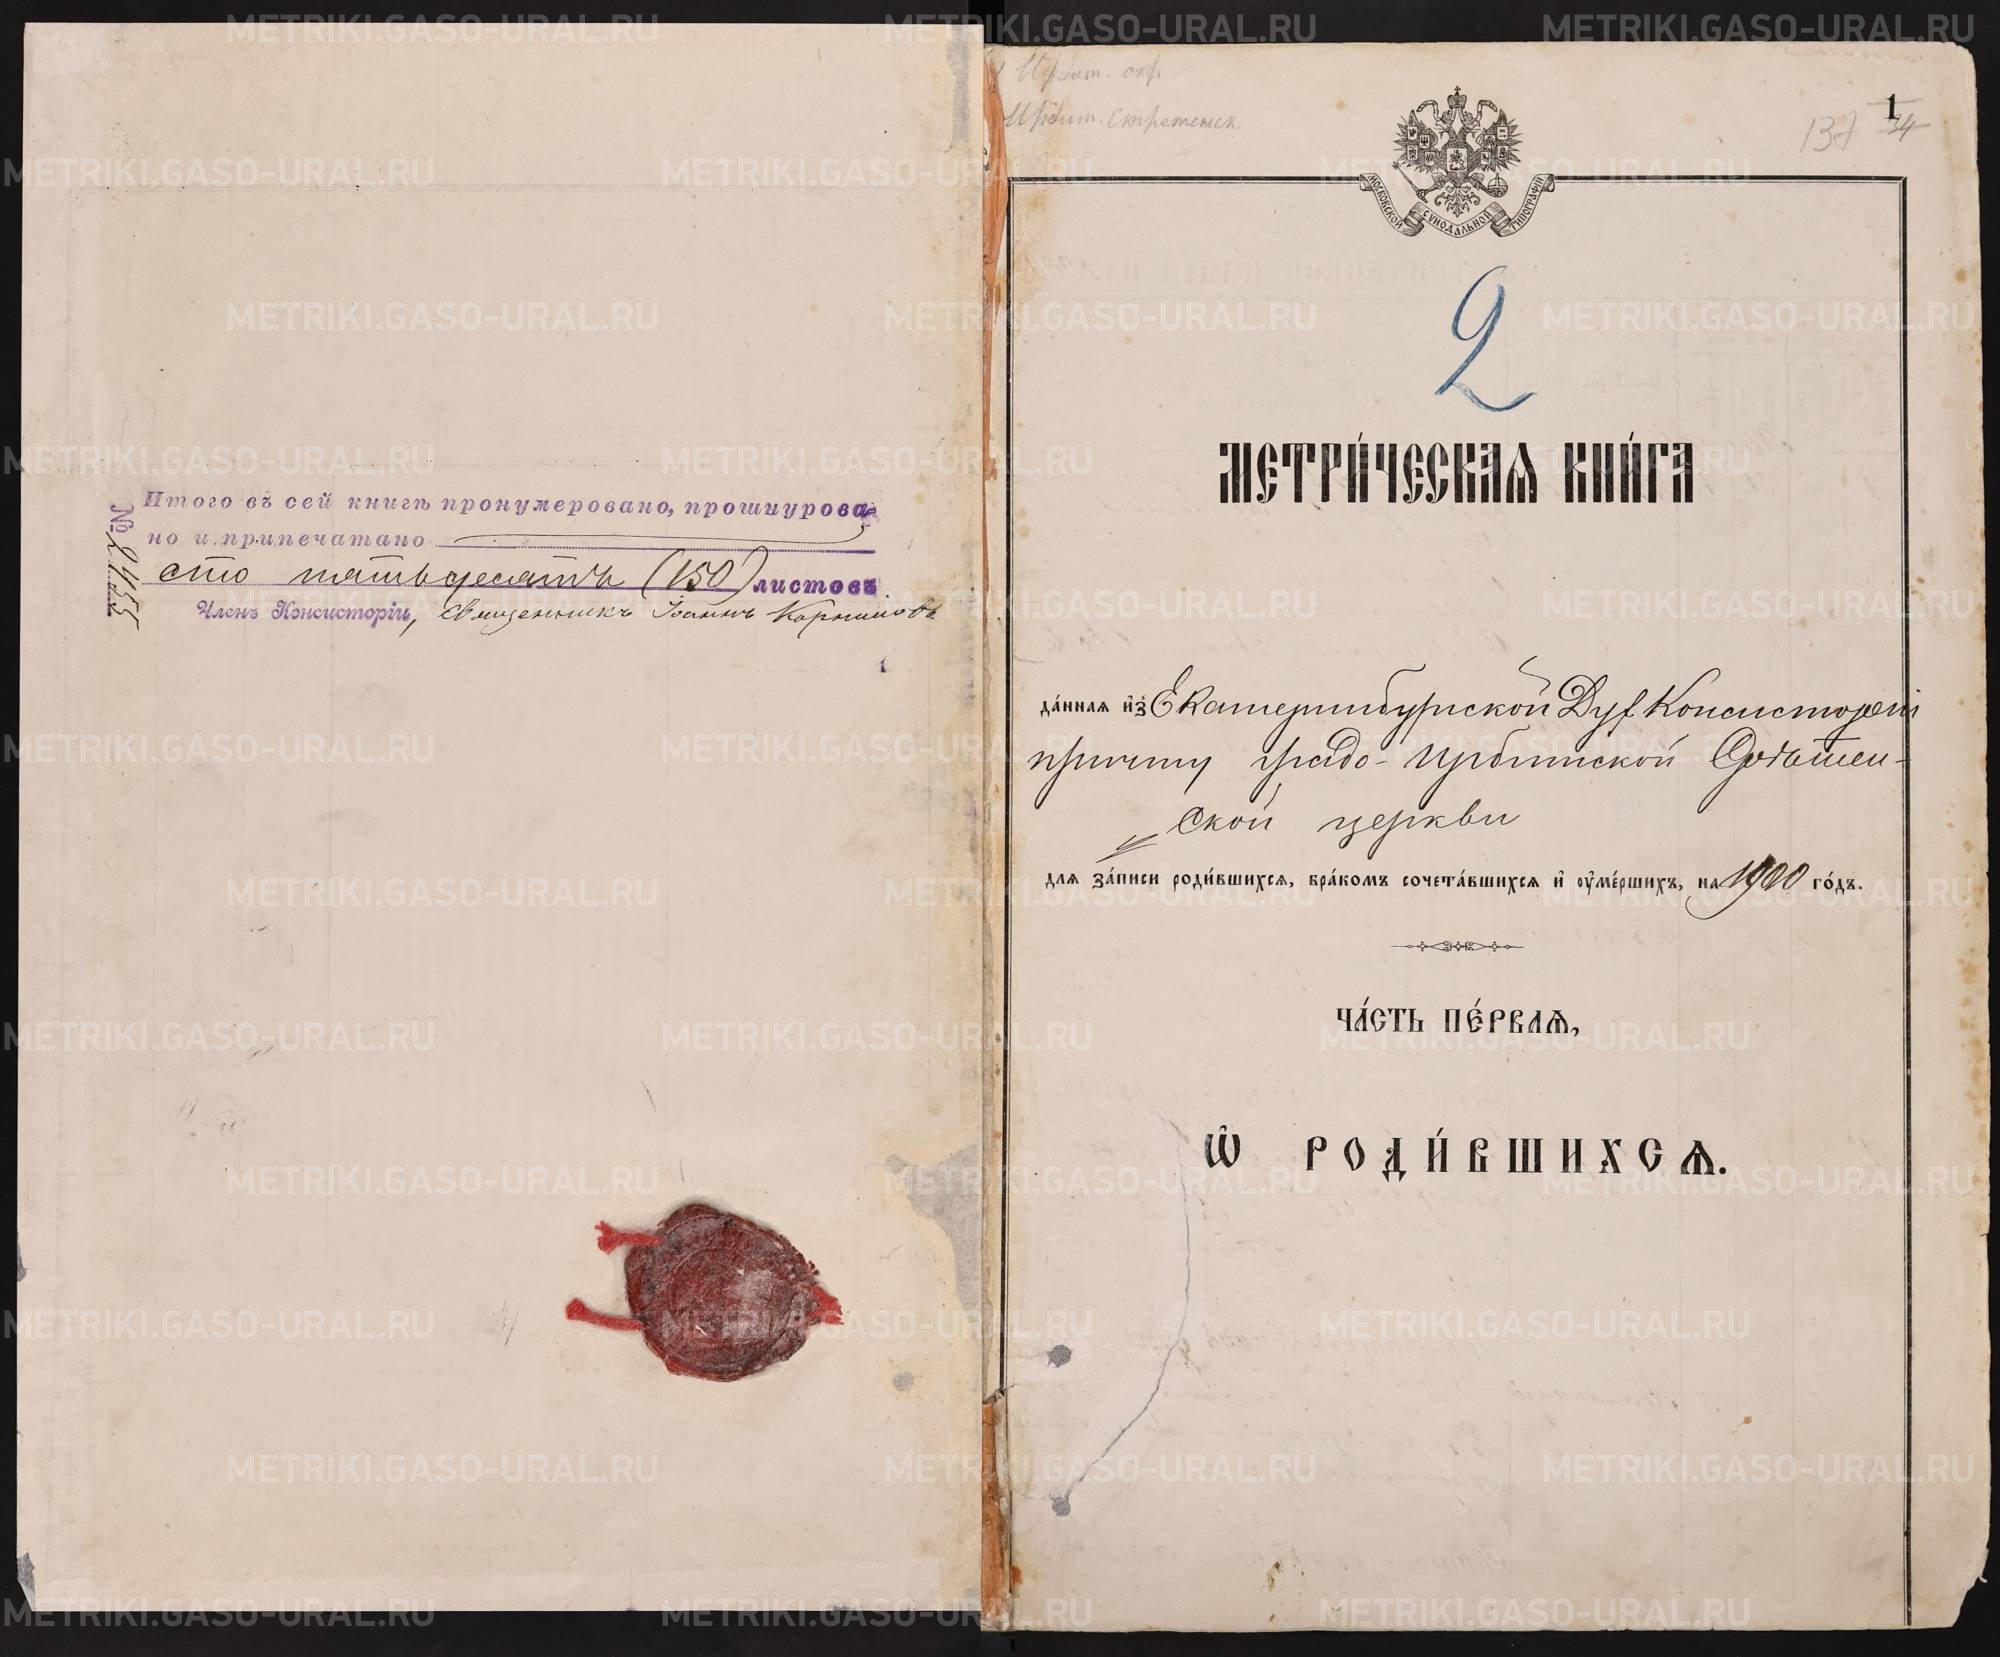 Итого въ сей книгѣ пронумеровано, прошнурова-
но и припечатано
сто пятьдесятъ (150) листовъ
Членъ Консисторіи, Священникъ Іоаннъ Корниловъ
№ 2455
1
Ирбит. окр.
Ирбит. Сретенск.
137
34
1
МОСКОВСКОЙ СѴНОДАЛЬНОЙ ТИПОГРАФІИ
2
МЕТРИ́ЧЕСКАѦ КНИ́ГА
да́нная и҆з̾ Екатеринбургской Дух Консисторіи
причту градо-Ирбитской Срѣтен-
ской церкви
для за́писи роди́вшихся, бра́комъ сочета́вшихся и҆ ᲂу҆ме́ршихъ, на 1900 го́дъ.
ЧА́СТЬ ПЕ́РВАѦ,
Ѽ РОДИ́ВШИХСѦ.
METRIKI.GASO-URAL.RU